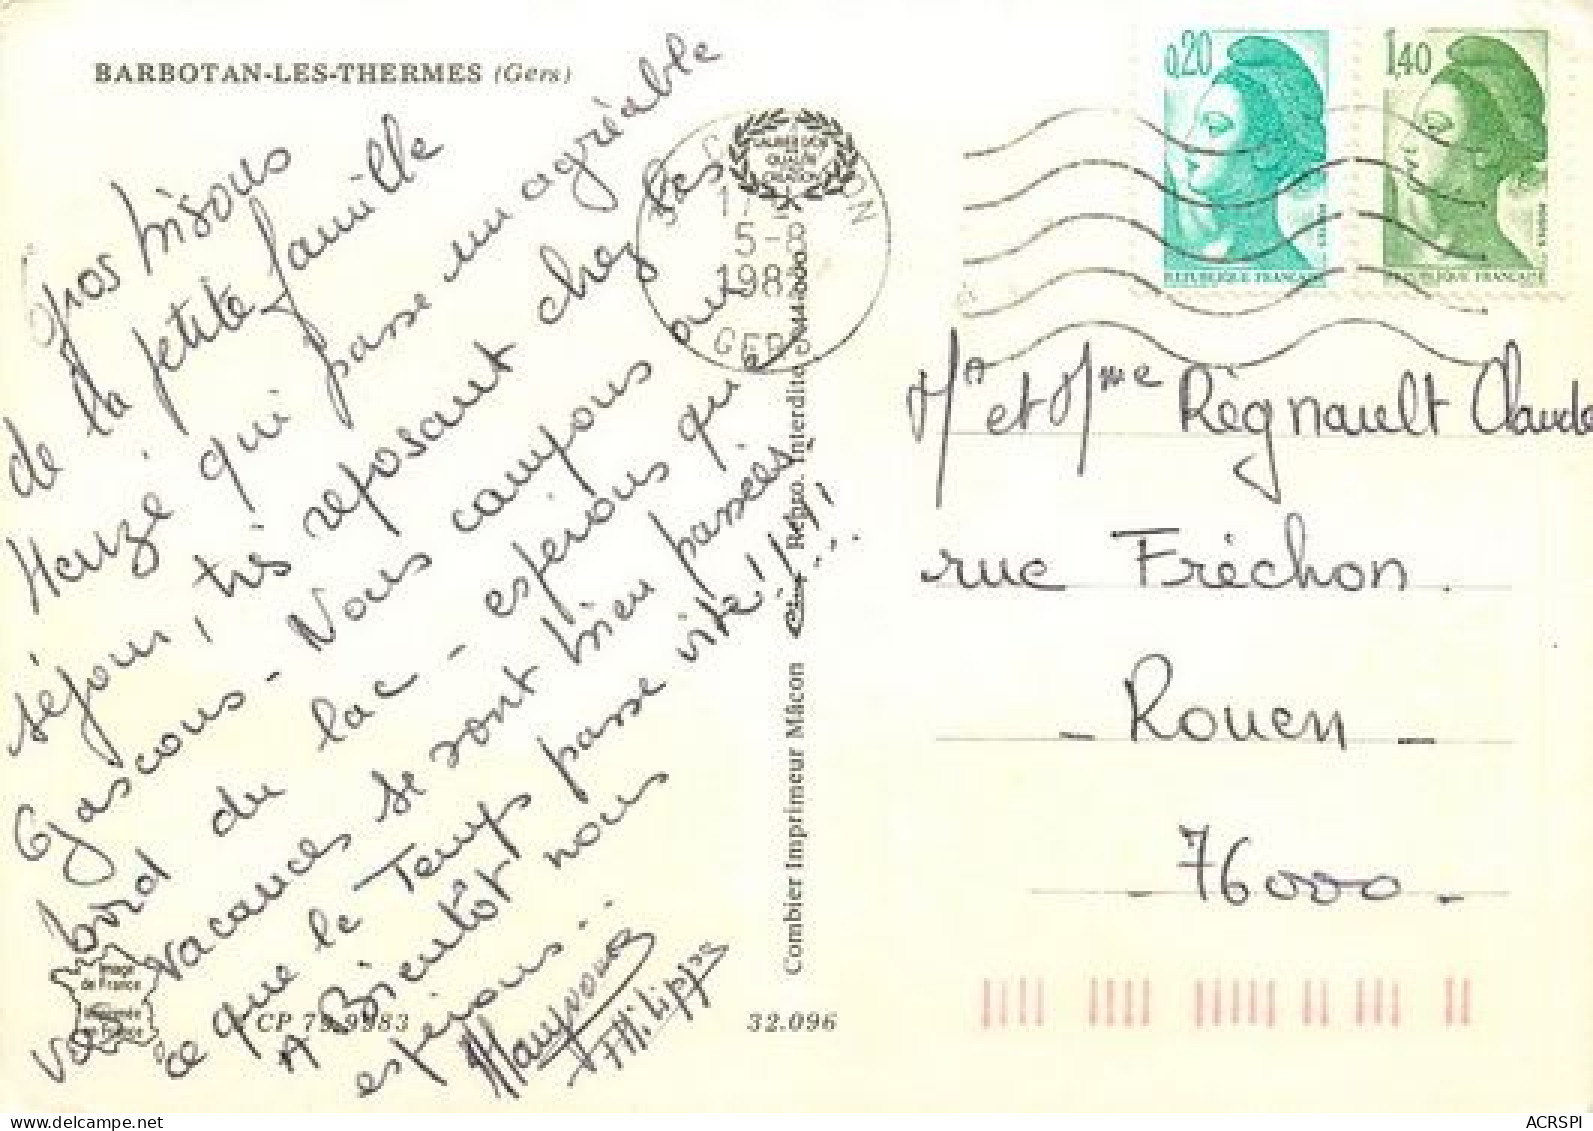 BARBOTAN-LES-THERMES (Gers)
gros bisous
de la petite famille
Heuzé qui passe un agréable
séjour, très reposant chez les
Gascons - Nous campons au
bord du lac - espérons que
vos vacances se sont bien passées
ce que le Temps passe vite!!!!...
A Bientôt nous
espérons...
Philippe
Image
de France
Imprimée
en France
CP 75.9983
32.096
Combier Imprimeur Mâcon
Repro. Interdite
QUALITÉ
CRÉATION
17 H
5-8
198
GERS
0,20
REPUBLIQUE FRANÇAISE
1,40
REPUBLIQUE FRANÇAISE
Mr et Mme Règnault Claude
rue Fréchon.
- Rouen -
- 76000 -
ACRSPI